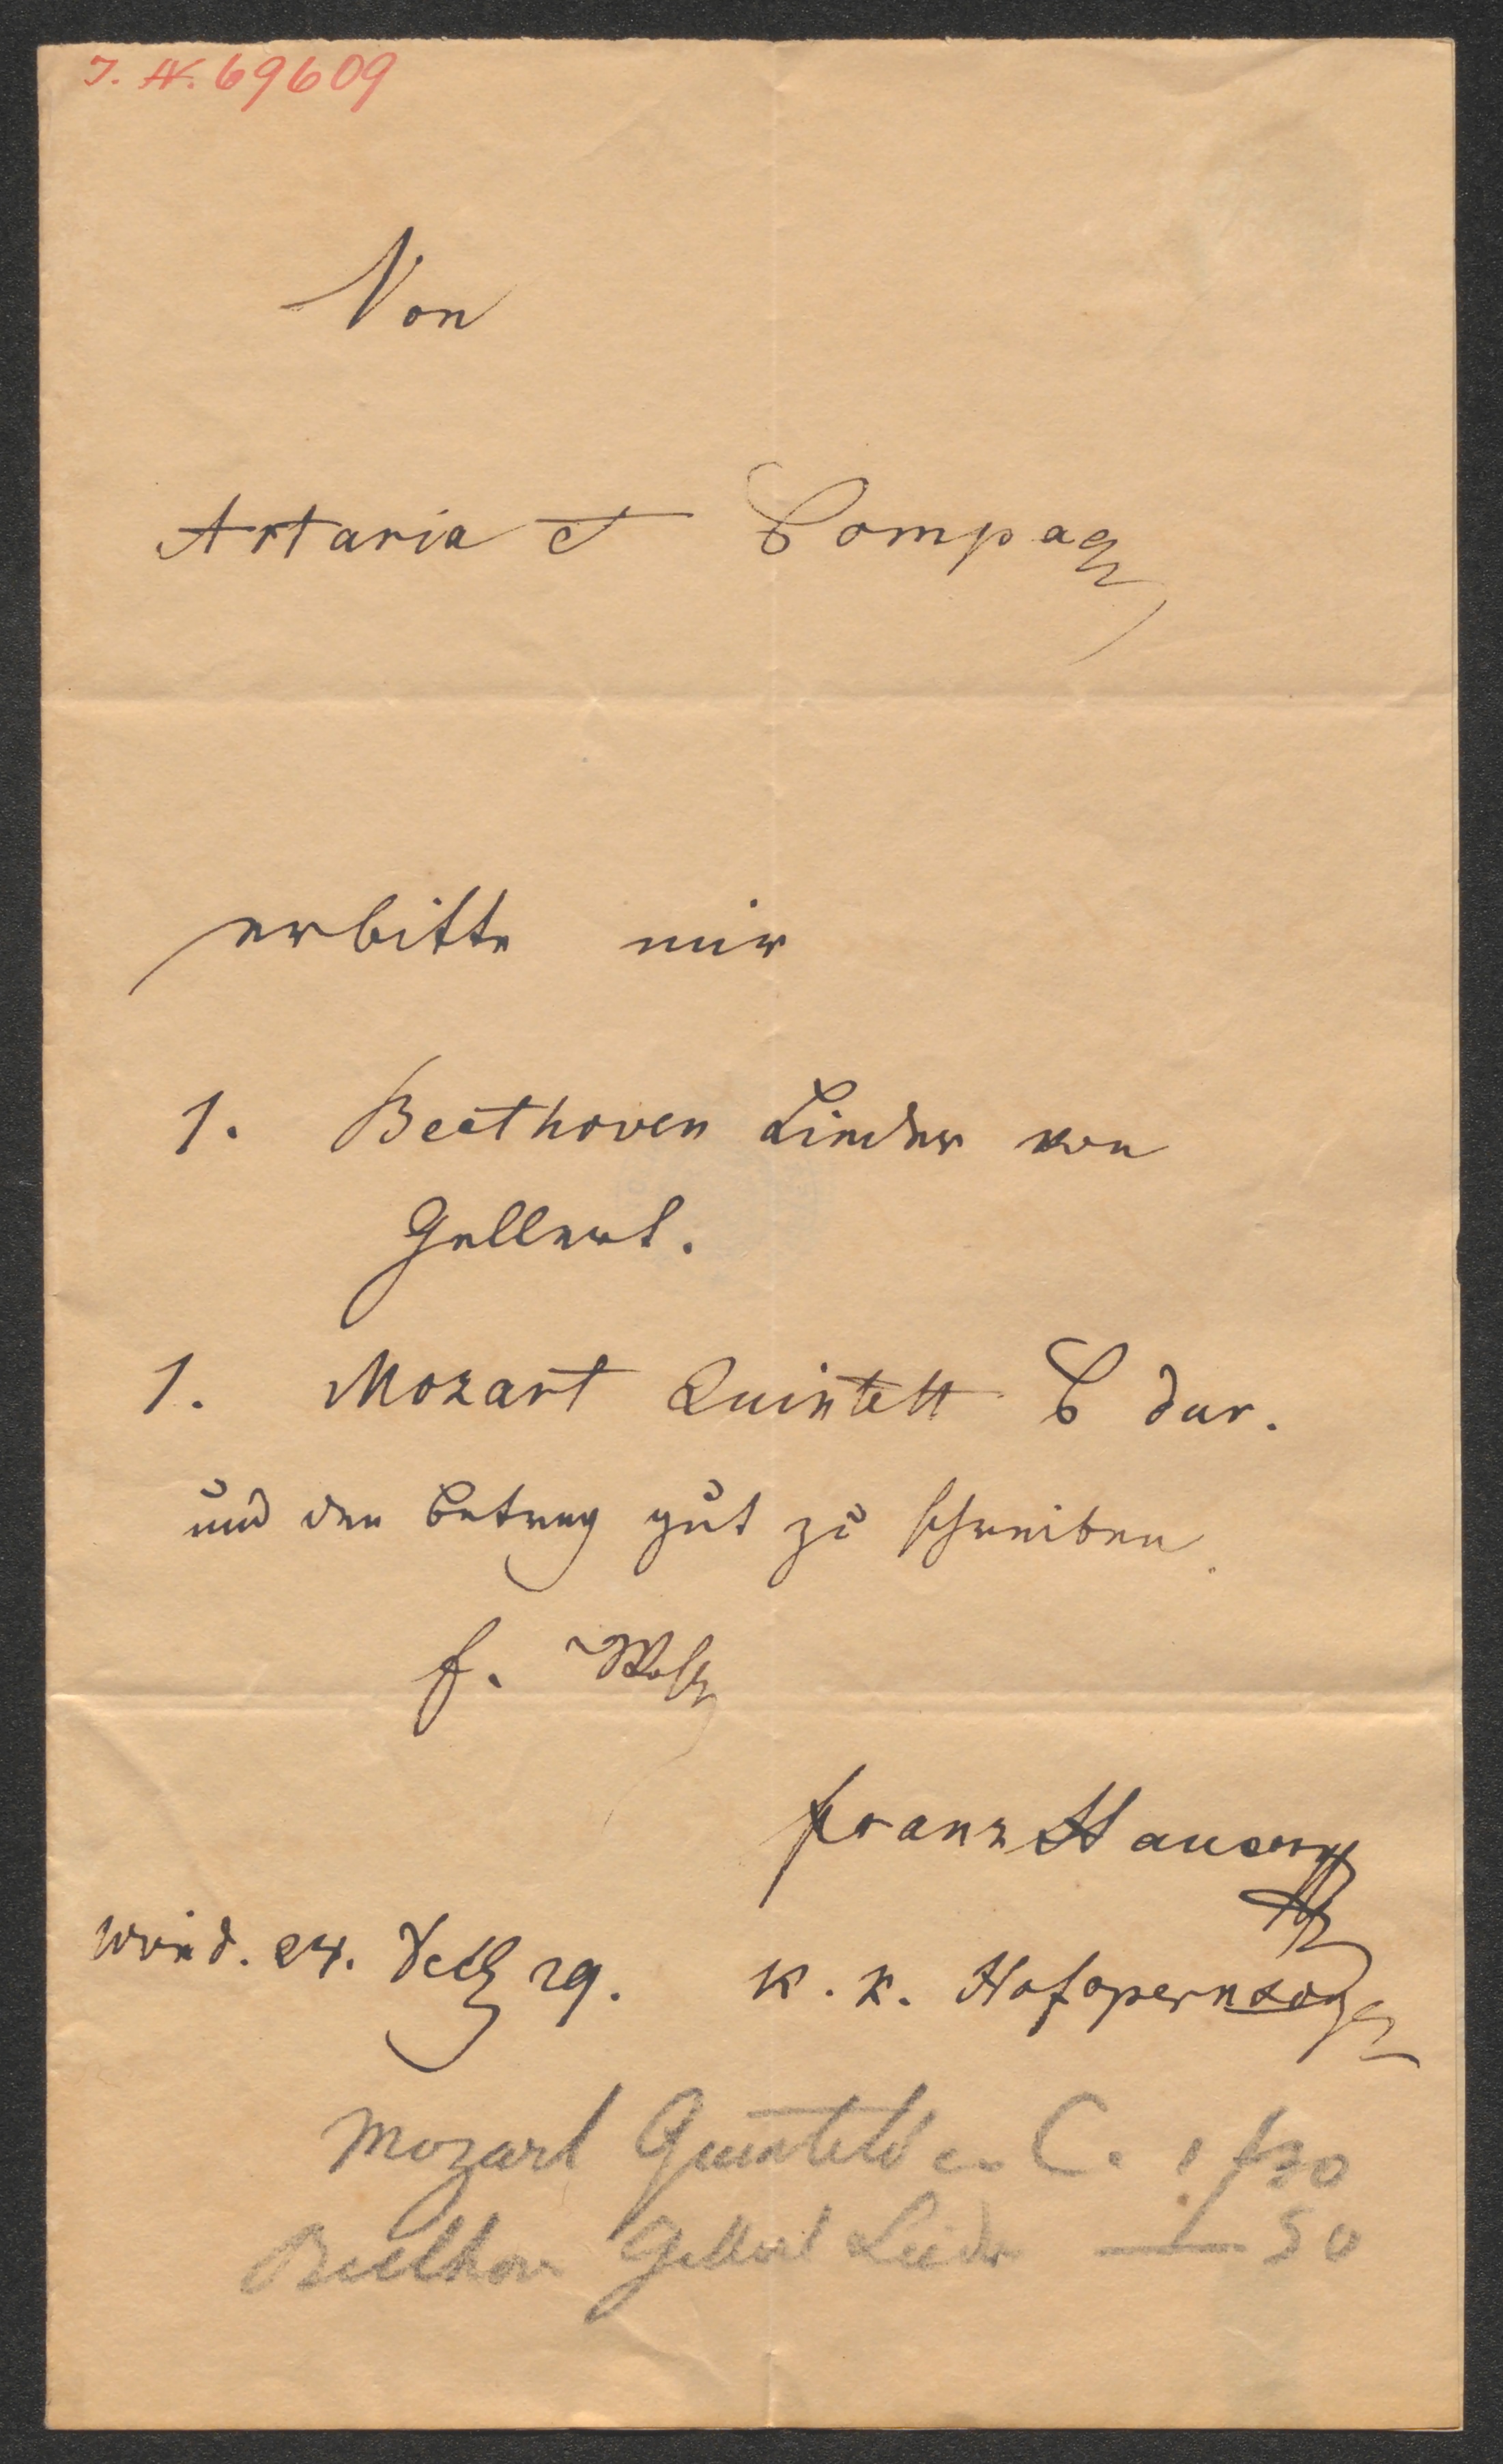 I. N. 69609
Von
Artaria et Compag
erbitte mir
1. Beethoven Lieder von
Gellert.
1. Mozart Quintett C dur.
und den Betrag gut zu schreiben.
f.
Franz Hauser
Wien d. 24. Dec 29. K. K. Hofopernsäng
Mozart Quintett in C. 1 f 30
Beethov Gellert Lieder — 50